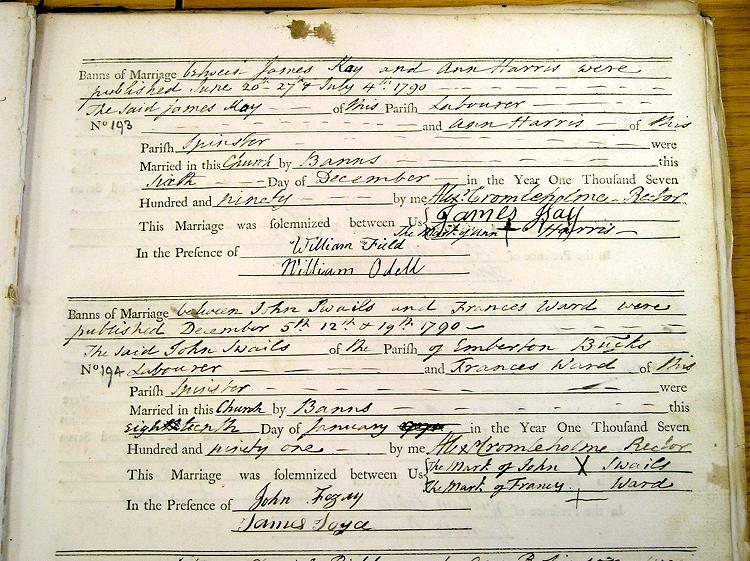 Banns of Marriage between James Kay and Ann Harris were
published June 20th 27th & July 4th 1790
The said James Kay of this Parish Labourer
No 193 and Ann Harris of this
Parish Spinster were
Married in this Church by Banns this
Sixth Day of December in the Year One Thousand Seven
Hundred and ninety by me Alexr Cromleholme Rector
This Marriage was solemnized between Us James Kay
The Mark of Ann + Harris
In the Presence of William Field
William Odell
Banns of Marriage between John Swails and Frances Ward were
published December 5th 12th & 19th 1790
The said John Swails of the Parish of Emberton Bucks
No 194 Labourer and Frances Ward of this
Parish Spinster were
Married in this Church by Banns this
Eighteenth Day of January in the Year One Thousand Seven
Hundred and ninety one by me Alexr Cromleholme Rector
This Marriage was solemnized between Us The Mark of John X Swails
The Mark of Frances + Ward
In the Presence of John
James